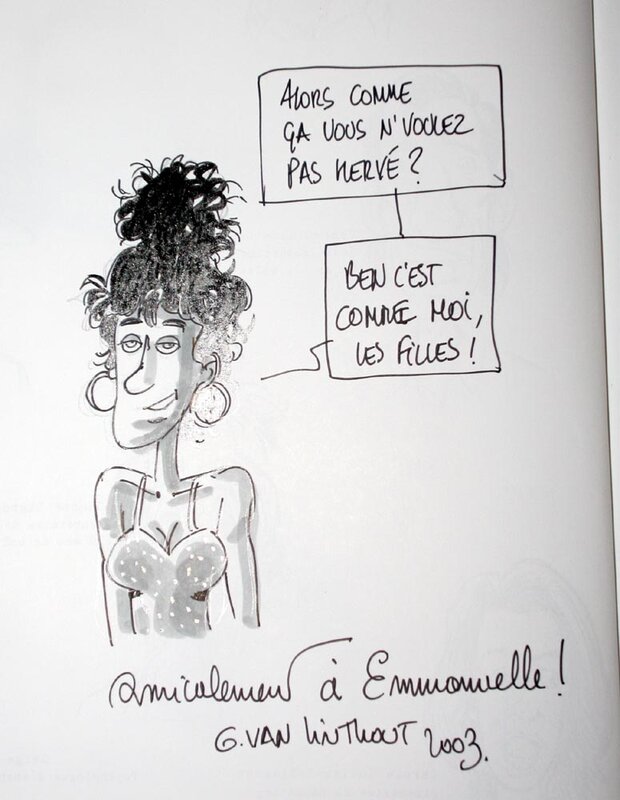 ALORS COMME
ÇA VOUS N'VOULEZ
PAS HERVÉ ?
BEN C'EST
COMME MOI,
LES FILLES !
Amicalement à Emmanuelle !
G. VAN LINTHOUT 2003.